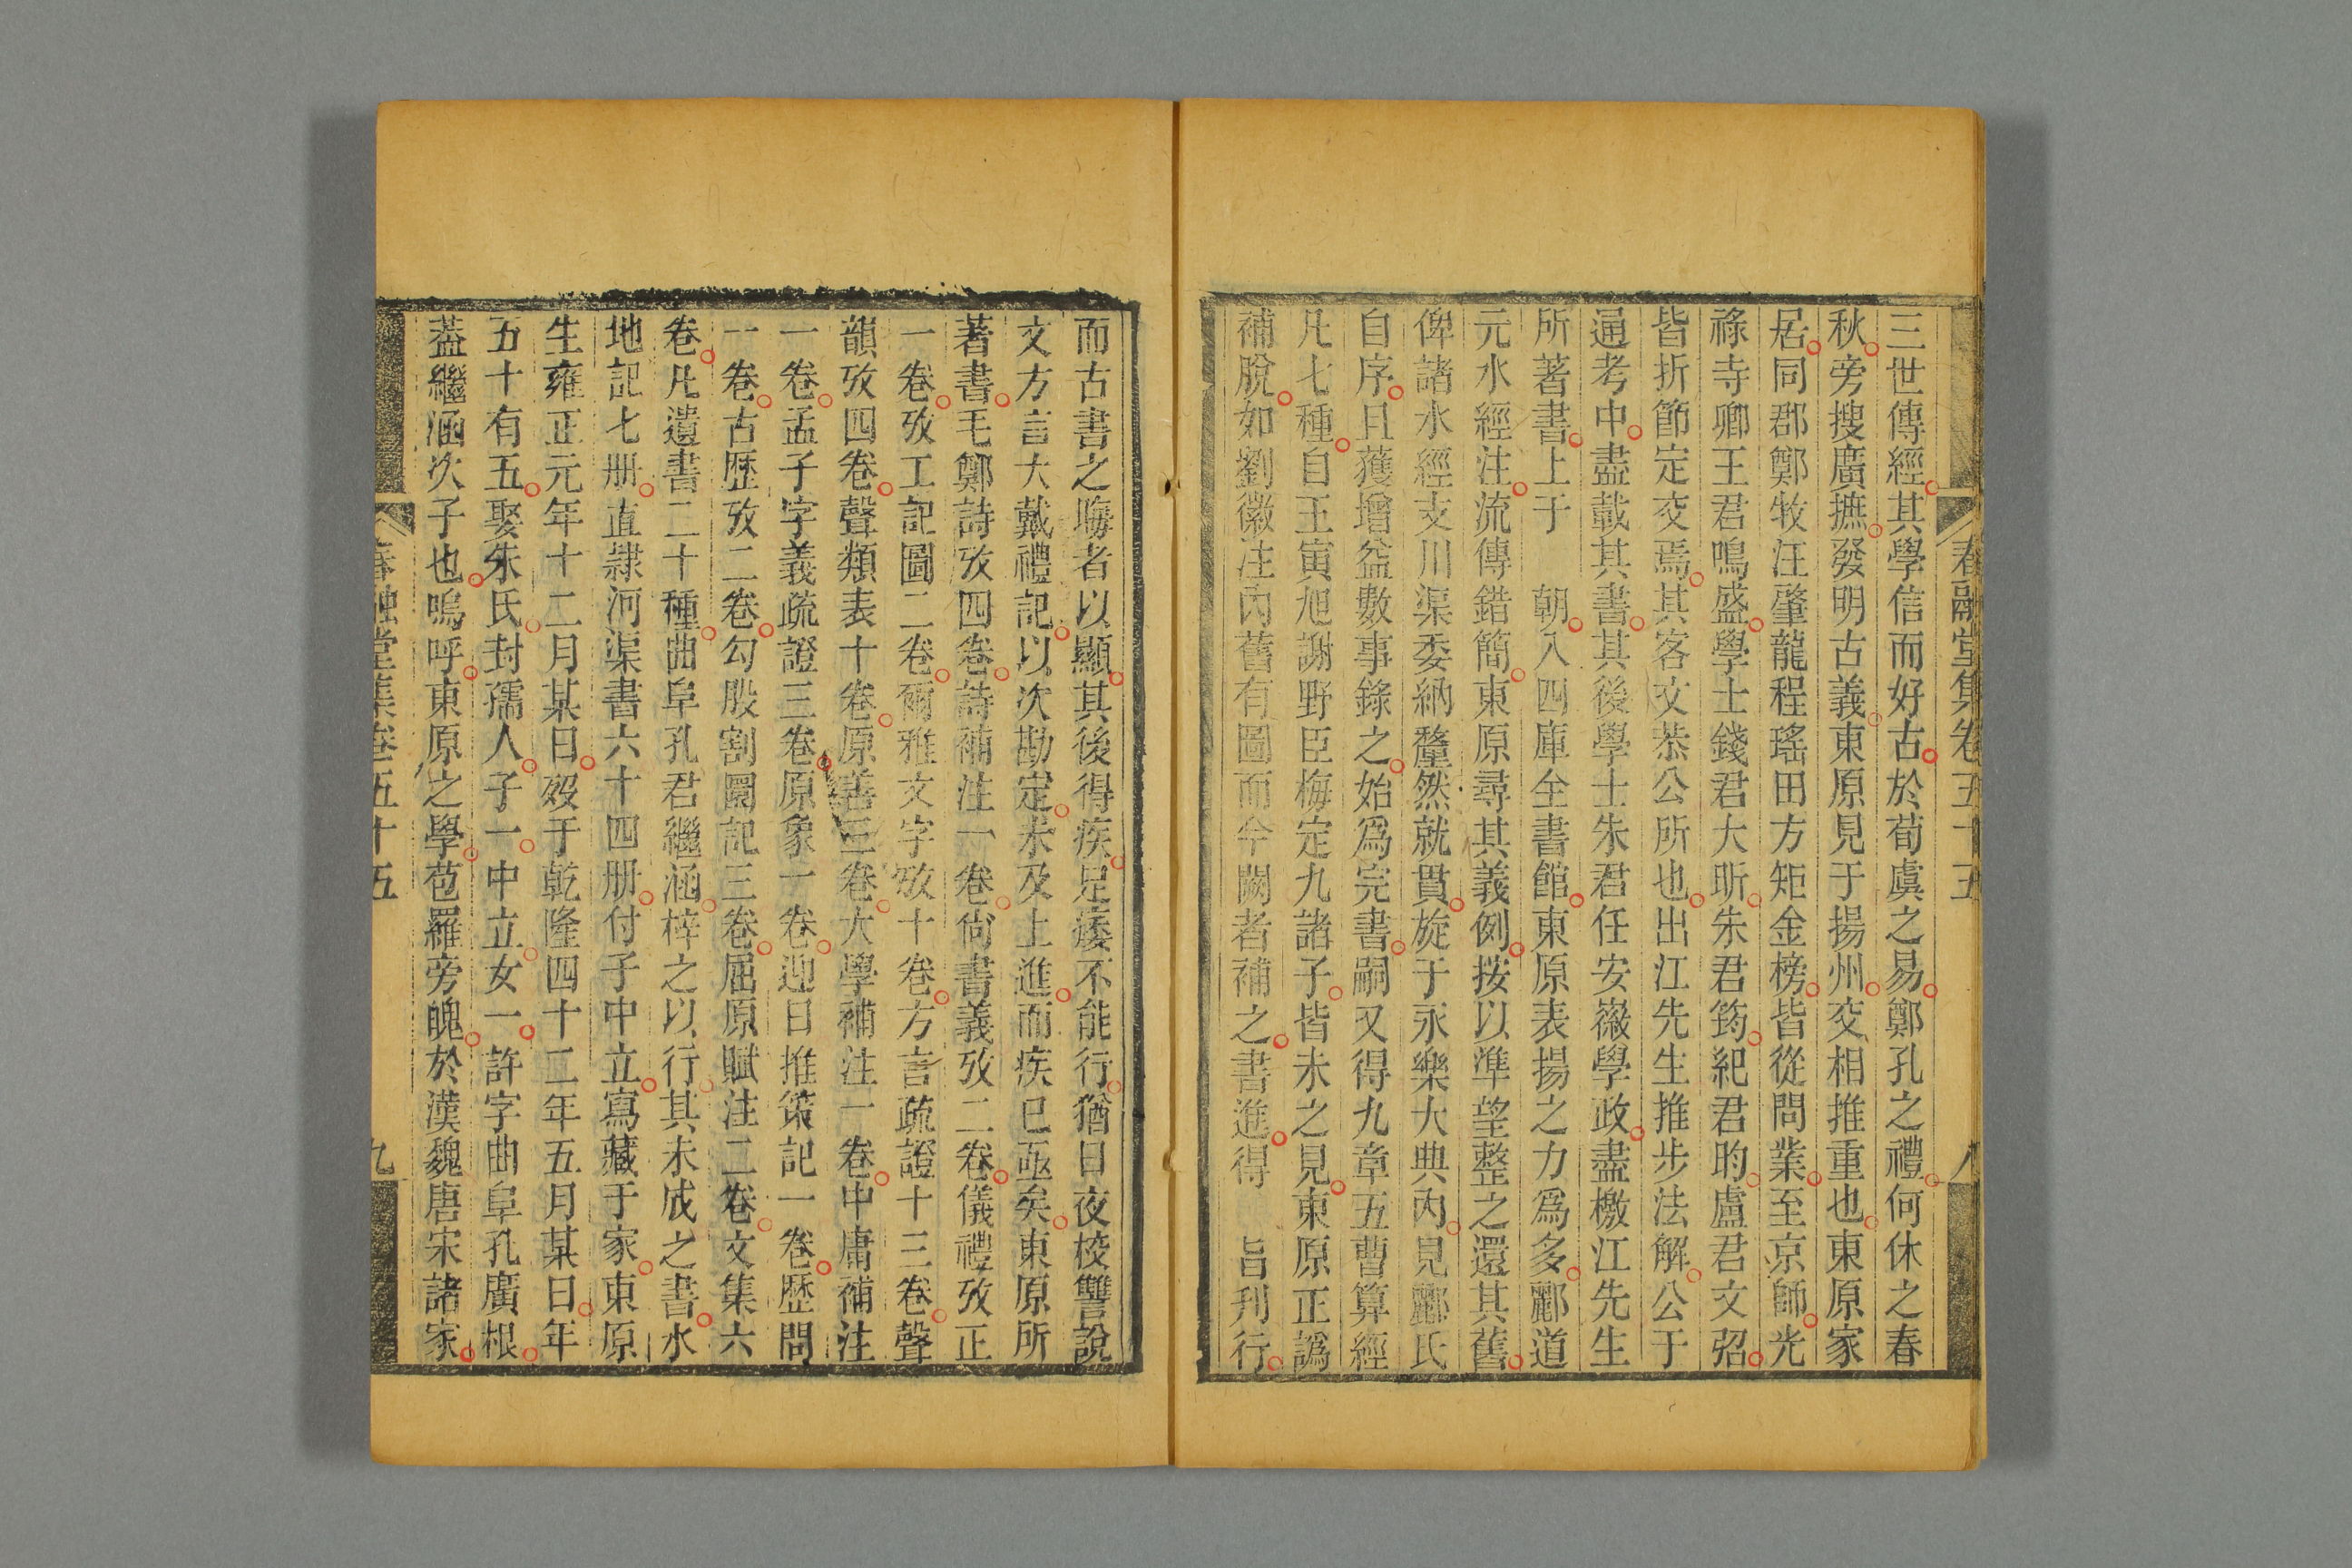 春融堂集卷五十五
八
三世傳經其學信而好古於荀虞之易鄭孔之禮何休之春
秋旁搜廣摭發明古義東原見于揚州交相推重也東原家
居同郡鄭牧汪肇龍程瑤田方矩金榜皆從問業至京師光
祿寺卿王君鳴盛學士錢君大昕朱君筠紀君昀盧君文弨
皆折節定交焉其客文恭公所也出江先生推步法解公于
通考中盡載其書其後學士朱君任安徽學政盡檄江先生
所著書上于　朝入四庫全書館東原表揚之力爲多酈道
元水經注流傳錯簡東原尋其義例按以準望整之還其舊
俾諸水經支川渠委納釐然就貫旋于永樂大典內見酈氏
自序且獲增益數事錄之始爲完書嗣又得九章五曹算經
凡七種自王寅旭謝野臣梅定九諸子皆未之見東原正譌
補脫如劉徽注內舊有圖而今闕者補之書進得　旨刊行
而古書之晦者以顯其後得疾足痿不能行猶日夜校讐說
文方言大戴禮記以次勘定未及上進而疾已亟矣東原所
著書毛鄭詩攷四卷詩補注一卷尚書義攷二卷儀禮攷正
一卷攷工記圖二卷爾雅文字攷十卷方言疏證十三卷聲
韻攷四卷聲類表十卷原善三卷大學補注一卷中庸補注
一卷孟子字義疏證三卷原象一卷迎日推策記一卷歷問
一卷古歷攷二卷勾股割圜記三卷屈原賦注二卷文集六
卷凡遺書二十種曲阜孔君繼涵梓之以行其未成之書水
地記七册直隸河渠書六十四册付子中立寫藏于家東原
生雍正元年十二月某日歿于乾隆四十二年五月某日年
五十有五娶朱氏封孺人子一中立女一許字曲阜孔廣根
葢繼涵次子也嗚呼東原之學苞羅旁魄於漢魏唐宋諸家
春融堂集卷五十五
九